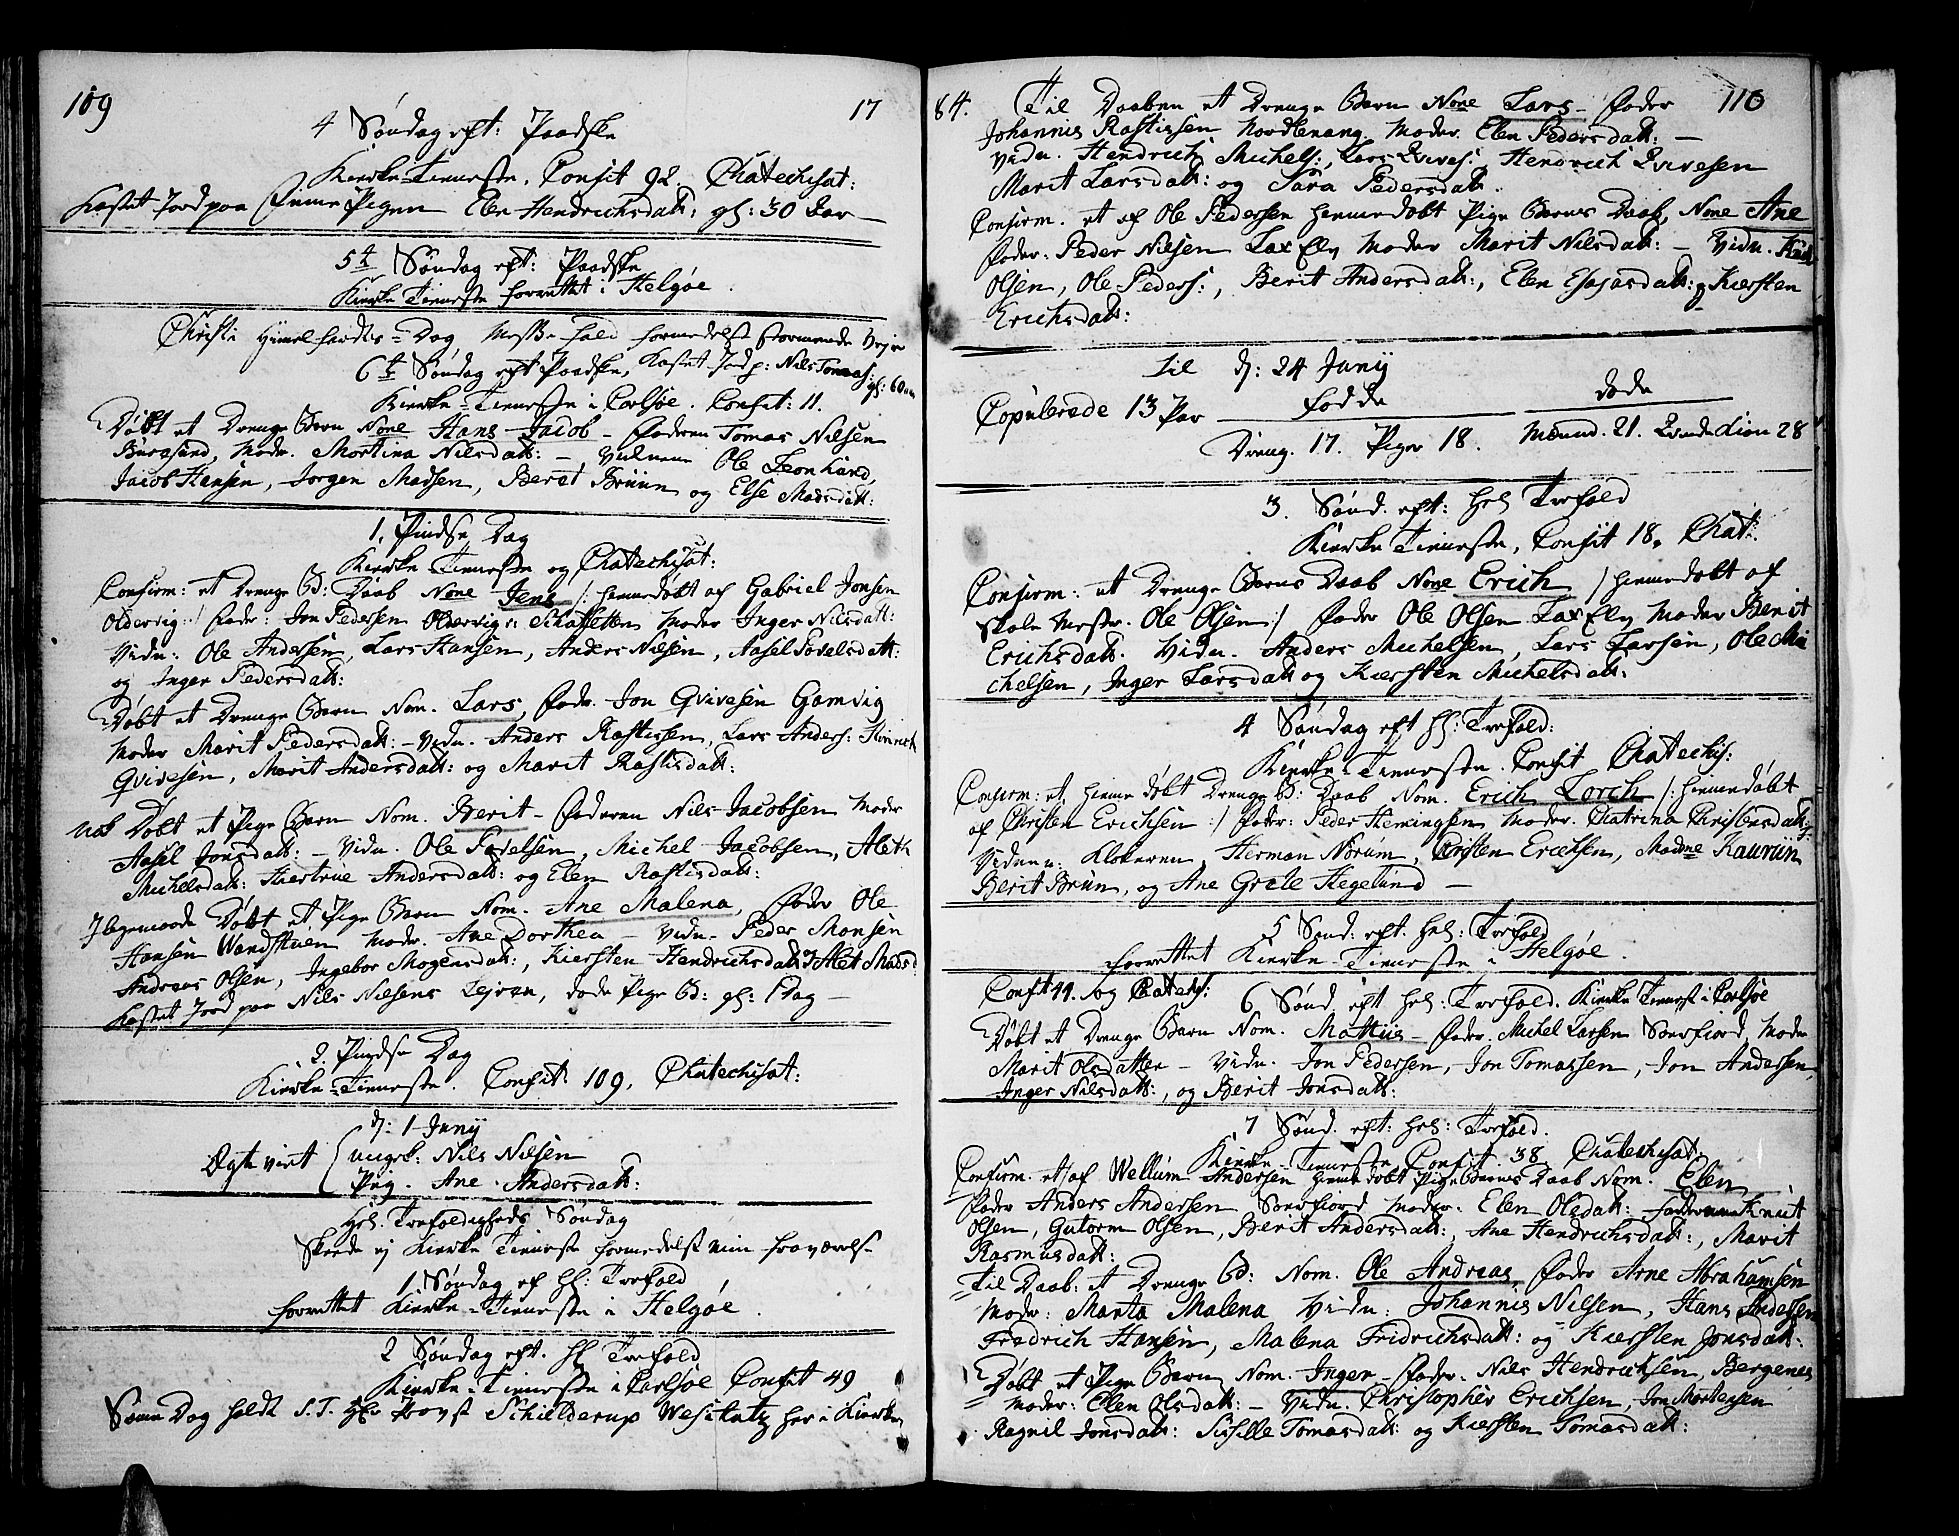 109
17
4 Søndag eft: Paadske
Kirke-Tieneste. Confit 92 Chatechisat:
Kastet Jord paa Pigen Elen Hendrichsdatt: gl: 30 Aar
5te Søndag eft: Paadske
Kirke Tieneste forrettet i Helgøe.
Christi Himmelfardts-Dag Messe-fald formedelst stormende Vejr
6te Søndag eft Paadske, Kastet Jord p: Nils Tomas: gl: 60 aar
Kirke-Tieneste i Carlsøe. Confit: 11.
Døbt et Drenge Barn None Hans Jacob - Faderen Tomas Nilsen
Burøsund, Moder. Martina Nilsdatt: - Vidnerne Ole Leonhard,
Jacob Hansen, Jorgen Madsen, Beret Bruun og Else Madsdatt:
1. Pindse Dag
Kirke Tieneste og Chatechisat:
Confirm: et Drenge B: Daab None Jens /: hiemedøbt af Gabriel Jonsen
Oldervig :/ Fader: Jon Pedersen Oldervig, Moder Inger Nilsdatt:
Vidn: Ole Andersen, Lars Hansen, Anders Nilsen, Aasel Povelsdatt:
og Inger Pedersdatt:
Døbt et Drenge Barn Nom. Lars, Fader. Jon Qvivesen Gamvig
Moder Marit Pedersdatt: - Vidn. Anders Rastissen, Lars Anders: Hinrich
Qvivesen, Marit Andersdatt: og Marit Rastisdatt:
nok Døbt et Pige Barn Nom. Berit - Faderen Nils Jacobsen Moder
Aasil Jonsdatt: - Vidn. Ole Povelsen, Michel Jacobsen, Aleth
Michelsdatt: Giertrue Andersdatt: og Elen Rastisdatt:
Jligemaade Døbt et Pige Barn Nom. Ane Malena, Fader Ole
Hansen Wandstuen Moder. Ane Dorthea - Vidn. Peder Monsen
Andreas Olsen, Ingebor Mogensdatt:, Kiersten Hendrichsdatt: Atlet Madsd
Kastet Jord paa Nils Nilsens Lejren, døde Pige B: gl: 1 Dag -
2. Pindse Dag
Kirke-Tieneste. Confit: 109, Chatechisat:
d: 1 Junij
Ægteviet { ungk: Nils Nilsen
Pig. Ane Andersdatt:
Hel. Trefoldigheds Søndag
Skeede ej Kirke Tieneste formedelst min fraværelse
1 Søndag ef hl: Trefold
forrettet Kirke-Tieneste i Helgøe.
2 Søndag eft. hl Trefold
Kirke-Tieneste i Carlsøe Confit 49
Same Dag holdt S.T. Hr Provst Schielderup Wesitatz her i Kirken
84.
110
Til Daaben et Drenge Barn None Lars - Fader
Johannis Rastissen Nordlenang. Moder. Elen Pedersdatt: -
Vidn. Hendrich Michels:, Lars Qvives:, Hendrich Qvivesen
Marit Larsdatt: og Sara Pedersdatt.
Confirm. et af Ole Pedersen hiemedøbt Pige Barnes Daab, None Ane
Fader: Peder Nilsen Lax Elv Moder Marit Nilsdatt: - Vidn. Knut
Olsen, Ole Peders:, Berit Andersdatt:, Elen Esajasdatt: og Kiersten
Erichsdatt:
Til d: 24 Junij
Copulerede 13 Par
fødde
døde
Dreng. 17. Piger 18.
Mænd. 21. Qvindekion 28
3. Sønd. eft: hel Trefold
Kirke Tieneste, Confit 18. Chat:
Confirm: et Drenge Barns Daab None Erich /: hiemedøbt af
Skole Mester. Ole Olsen :/ Fader Ole Olsen Lax Elv Moder Berit
Erichsdatt. Vidn. Anders Michelsen, Lars Larsen, Ole Mi
chelsen, Inger Larsdatt og Kiersten Michelsdatt:
4 Søndag eft hl: Trefold:
Kirke-Tieneste. Confit Chatechis:
Confirm: et hieme døbt Drenge B: Daab Nom. Erich Lorch /: hiemedøbt
af Christen Erichsen :/ Fader: Peder Hemingsen Moder. Chatrina Christensdatt:
Vidne: Klokeren, Herman Norum, Christen Erichsen, Madme Kaurin
Berit Bruun, og Ane Grete Hegelund -
5 Sønd: eft: hel: Trefold
forrettet Kirke Tieneste i Helgøe.
Confit 44. og Chatechis:
6 Sønd. eft hel: Trefold. Kirke Tieneste i Carlsøe
Døbt et Drenge Barn Nom. Mattis - Fader. Michel Larsen Sørfiord, Moder
Marit Olsdatter - Vidn. Jon Pedersen, Jon Tomassen, Jon Andersen,
Inger Nilsdatt:, og Berit Jonsdatt:
7 Sønd. eft: hel: Trefold.
Kirke-Tieneste Confit. 38 Chatechisat.
Confirm. et af Wellum Andersen hiemedøbt Pige Barnes Daab Nom. Elen
Fader Anders Andersen Sørfiord Moder. Elen Olsdatt: Fadderne Knut
Olsen, Gutorm Olsen, Berit Andersdatt:, Ane Hendrichsdatt:, Marit
Rasmusdatt:
Til Daab: et Drenge B: Nom. Ole Andreas, Fader Arne Abrahamsen
Moder: Marta Malena Vidn: Johannis Nilsen, Hans Pedersen
Fredrich Hansen, Malena Fridrichsdatt: og Kiersten Jonsdatt:
Døbt et Pige Barn Nom. Inger - Fader. Nils Hendrichsen, Bergenes
Moder: Elen Olsdatt: - Vidn. Christopher Erichsen, Jon Mortensen
Ragnil Jonsdatt: Sissille Tomasdatt: og Kiersten Tomasdatt: